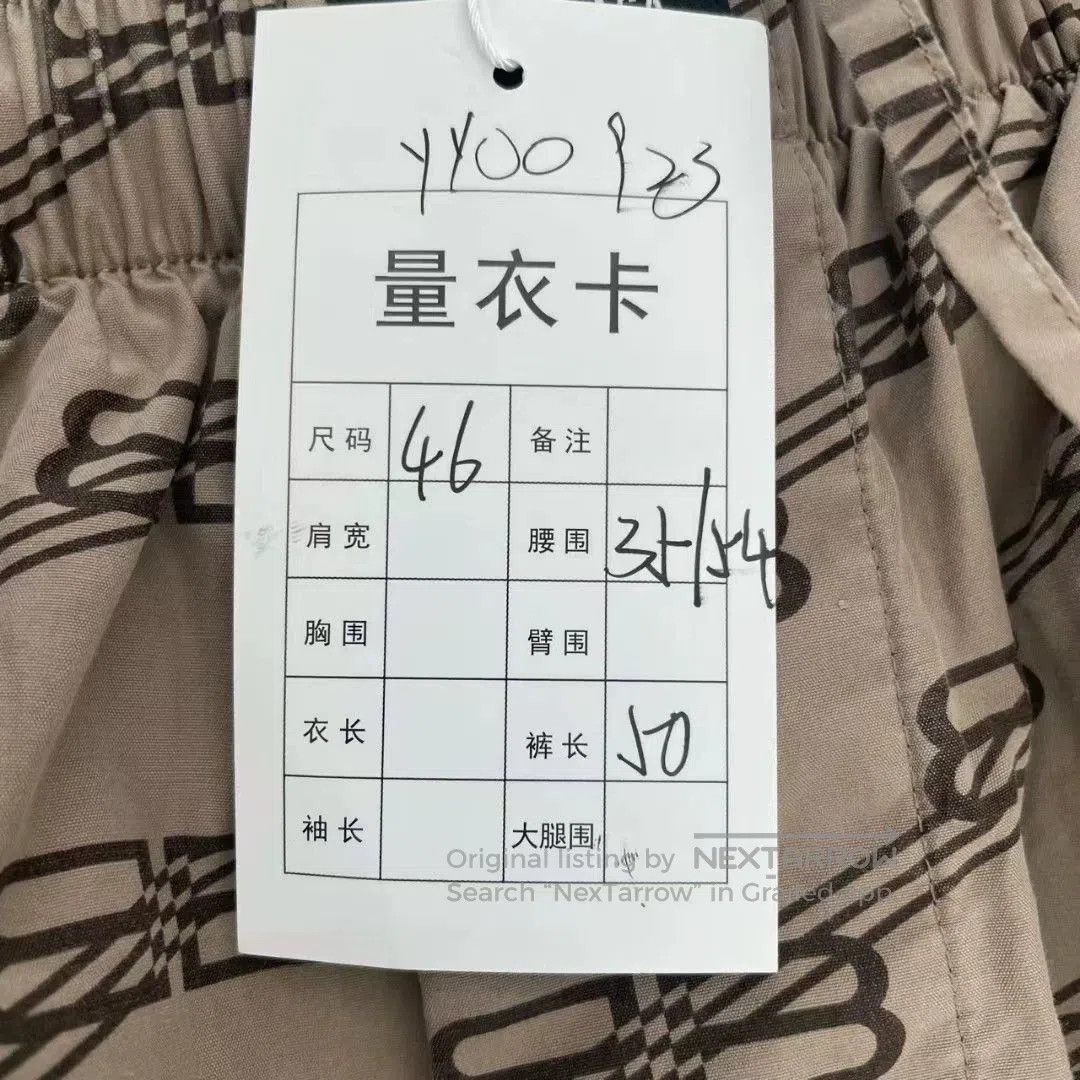 YY00 P23
量衣卡
尺码 46 备注
肩宽 腰围 35/54
胸围 臂围
衣长 裤长 50
袖长 大腿围
Original listing by NEXTARROW
Search "NexTarrow" in Grailed app